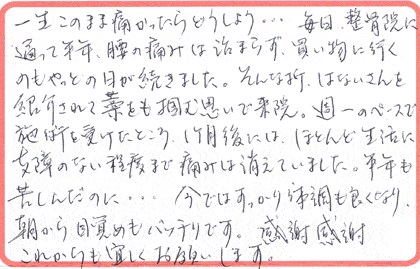 一生このまま痛かったらどうしよう… 毎日、整骨院に
通って半年、腰の痛みは治まらず、買い物に行く
のもやっとの日が続きました。そんな折、はないさんを
紹介されて藁をも掴む思いで来院。週一のペースで
施術を受けたところ、1ヶ月後には、ほとんど生活に
支障のない程度まで痛みは消えていました。半年も
苦しんだのに… 今ではすっかり体調も良くなり、
朝から目覚めもバッチリです。感謝感謝
これからも宜しくお願いします。